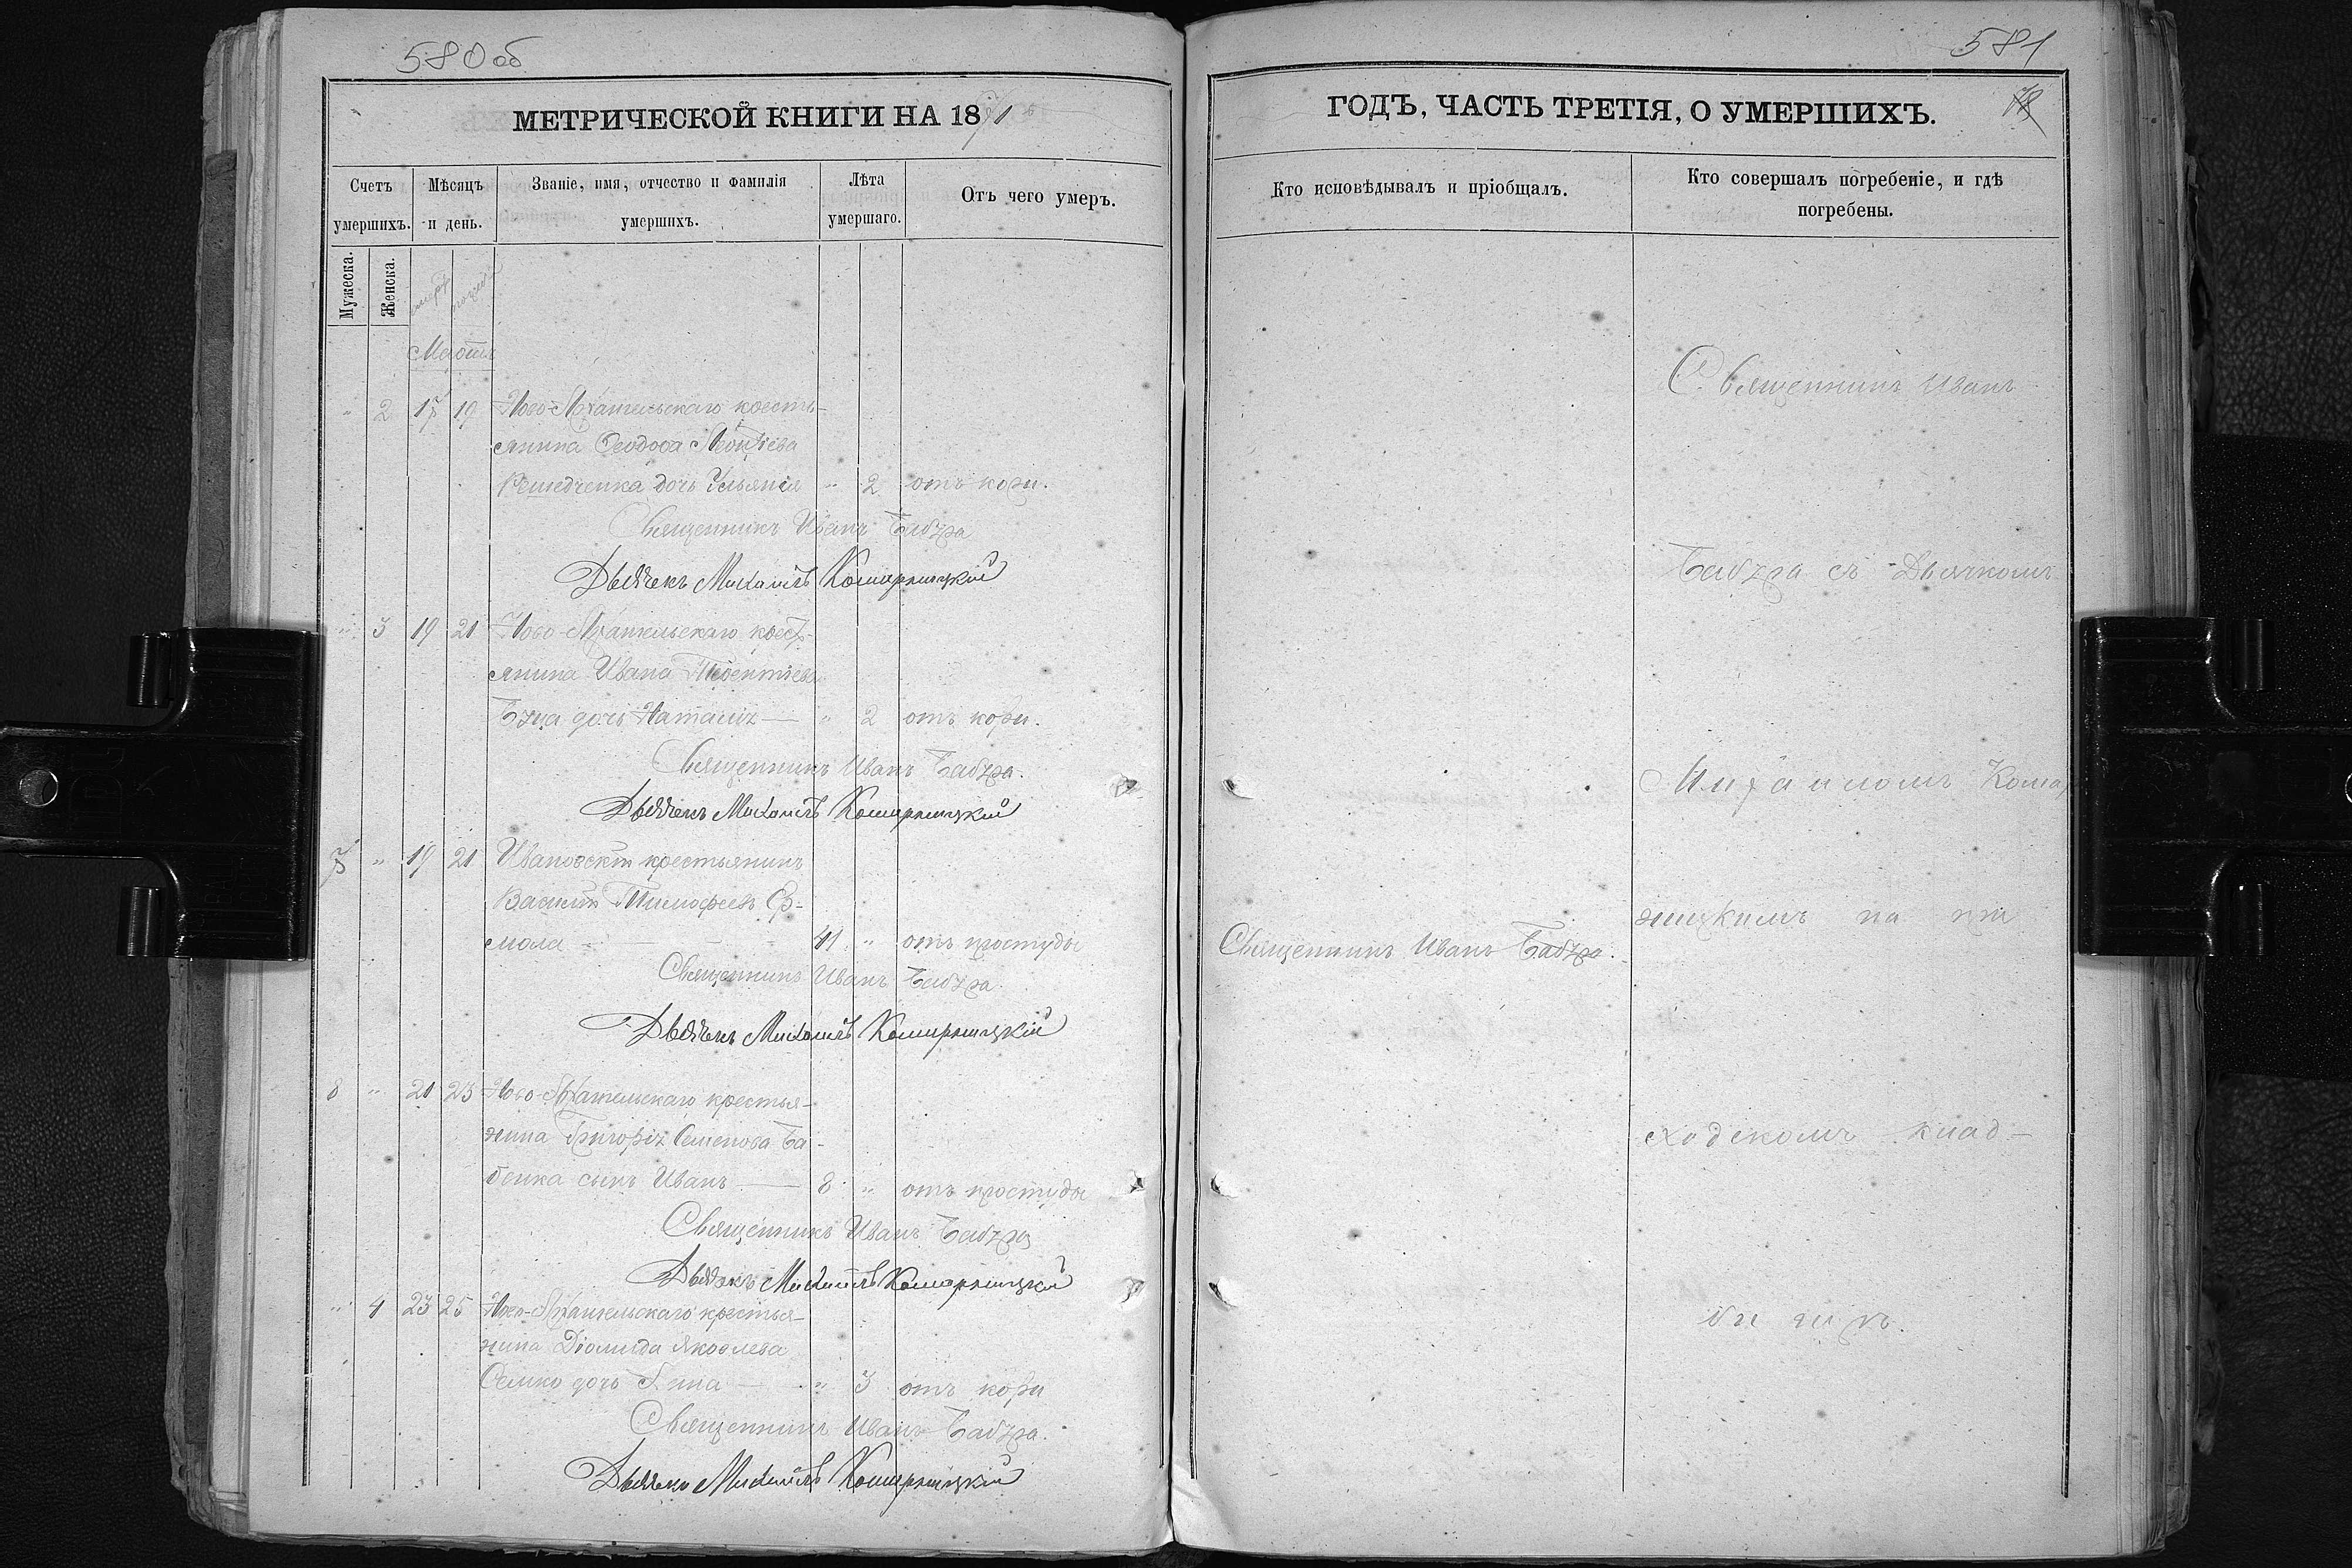 580 об
МЕТРИЧЕСКОЙ КНИГИ НА 1871
Счетъ умершихъ.
Мѣсяцъ и день.
Званіе, имя, отчество и фамилія умершихъ.
Лѣта умершаго.
Отъ чего умеръ.
Мужеска.
Женска.
Мартъ
" 2 17 19 Ново-Архангельскаго кресть-
янина Ѳеодора
дочь " 2 отъ кори.
Священникъ Иванъ Бабура
Дьячекъ Михаилъ Комарницкій
" 3 19 21 Ново-Архангельскаго крест-
янина Ивана Терентіева
дочь Наталія — " 2 отъ кори.
Священникъ Иванъ Бабура.
Дьячекъ Михаилъ Комарницкій
7 " 19 21 Ивановскій крестьянинъ
Василій Тимофеевъ Яр-
мола — 41 " отъ простуды
Священникъ Иванъ Бабура.
Дьячекъ Михаилъ Комарницкій
8 " 21 23 Ново-Архангельскаго крестья-
нина Григорія Семенова Ба-
бенка сынъ Иванъ — 8 " отъ простуды
Священникъ Иванъ Бабура
Дьячекъ Михаилъ Комарницкій
" 4 23 25 Ново-Архангельскаго крестья-
нина Діомида Яковлева
дочь Анна — " 3 отъ кори
Священникъ Иванъ Бабура.
Дьячекъ Михаилъ Комарницкій
581
ГОДЪ, ЧАСТЬ ТРЕТІЯ, О УМЕРШИХЪ.
Кто исповѣдывалъ и пріобщалъ.
Кто совершалъ погребеніе, и гдѣ погребены.
Священникъ Иванъ
Бабура съ Дьячкомъ
Михаиломъ Комар
ницкимъ на при
Священникъ Иванъ Бабура.
ходскомъ клад-
бищѣ.